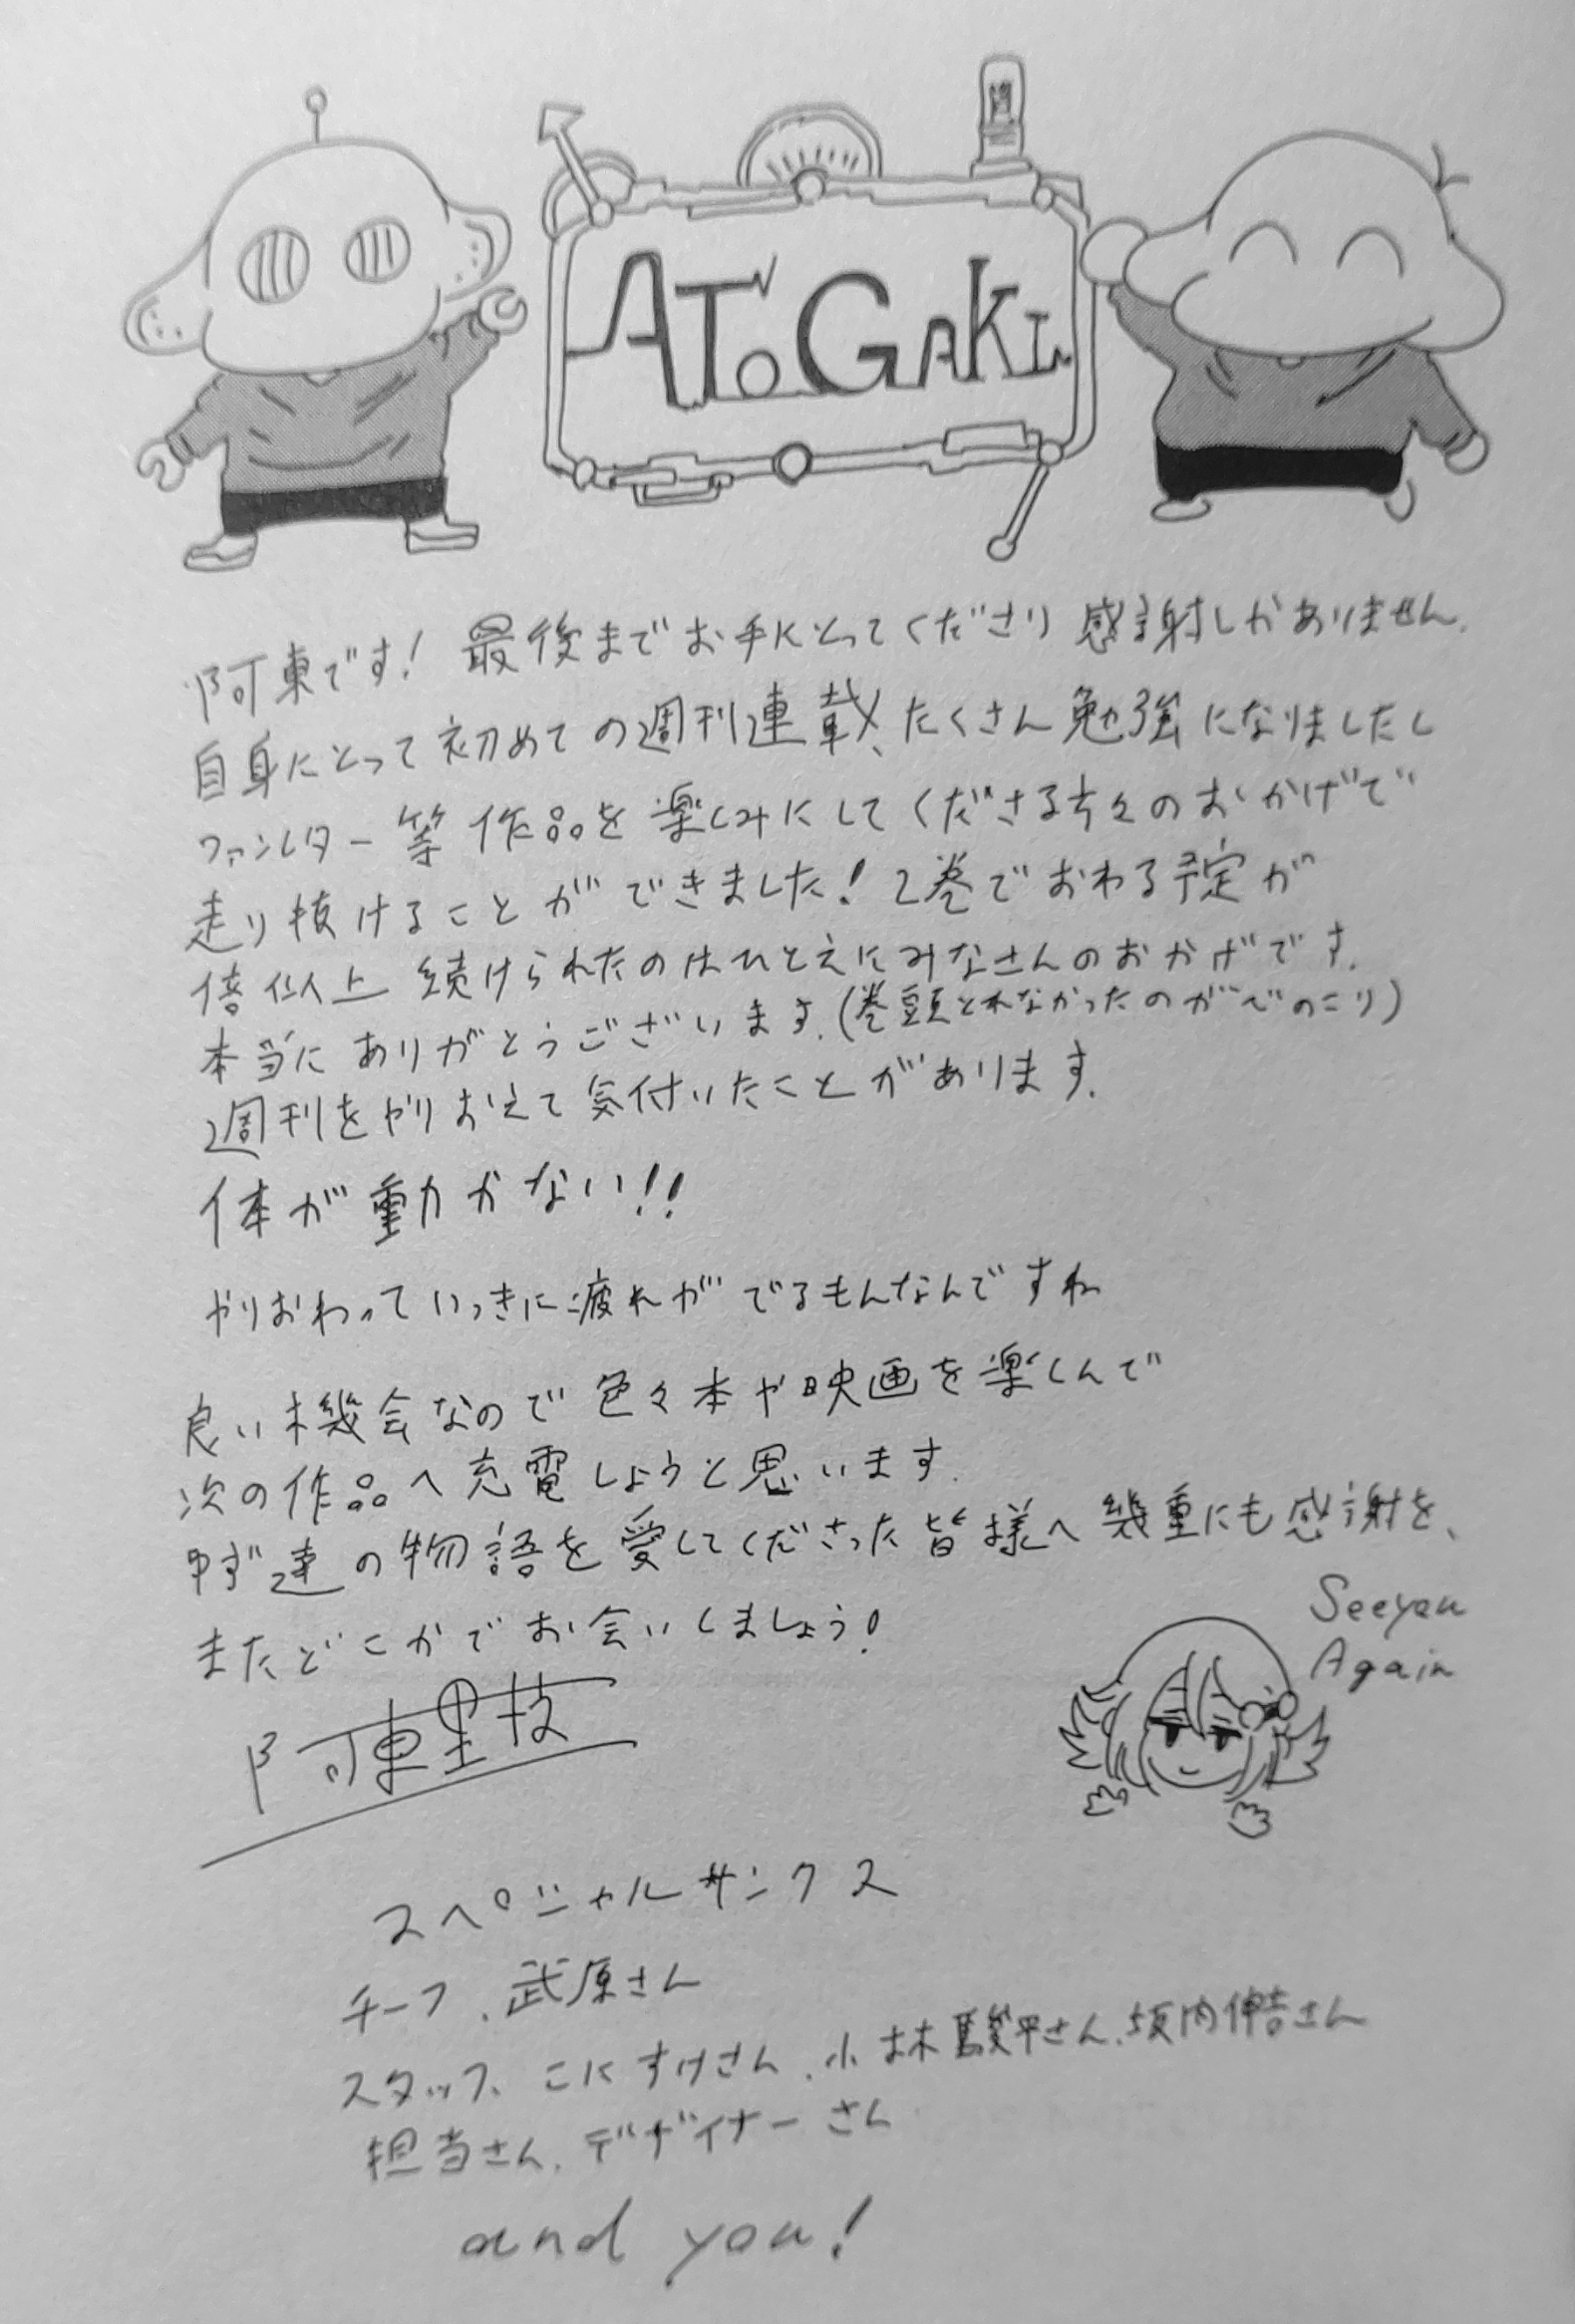 ATOGAKI
阿東です! 最後までお手にとってくださり 感謝しかありません.
自身にとって初めての週刊連載、たくさん勉強になりましたし
ファンレター等 作品を楽しみにしてくださる方々のおかげで
走り抜けることができました! 2巻でおわる予定が
倍以上 続けられたのはひとえにみなさんのおかげです.
本当にありがとうございます.(巻頭とれなかったのがざんのこり)
週刊をやりおえて気付いたことがあります.
体が動かない!!
やりおわっていっきに疲れがでるもんなんですね
良い機会なので色々本や映画を楽しんで
次の作品へ充電しようと思います.
ゆず達の物語を愛してくださった皆様へ幾重にも感謝を、
またどこかでお会いしましょう!
See you
Again
阿東里枝
スペシャルサンクス
チーフ、武原さん
スタッフ、こにすけさん、小林駿平さん、坂内伸吉さん
担当さん、デザイナーさん
and you!